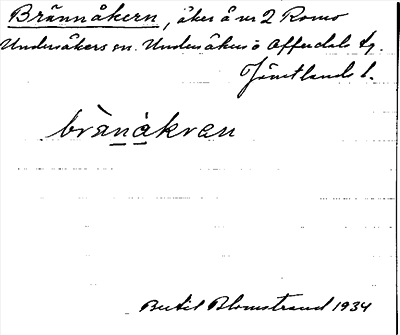 Brännåkern, åker å nr 2 Romo
Undersåkers sn. Undersåkers o Offerdals tg.
Jämtlands l.
brànákræn
Bertil Blomstrand 1934